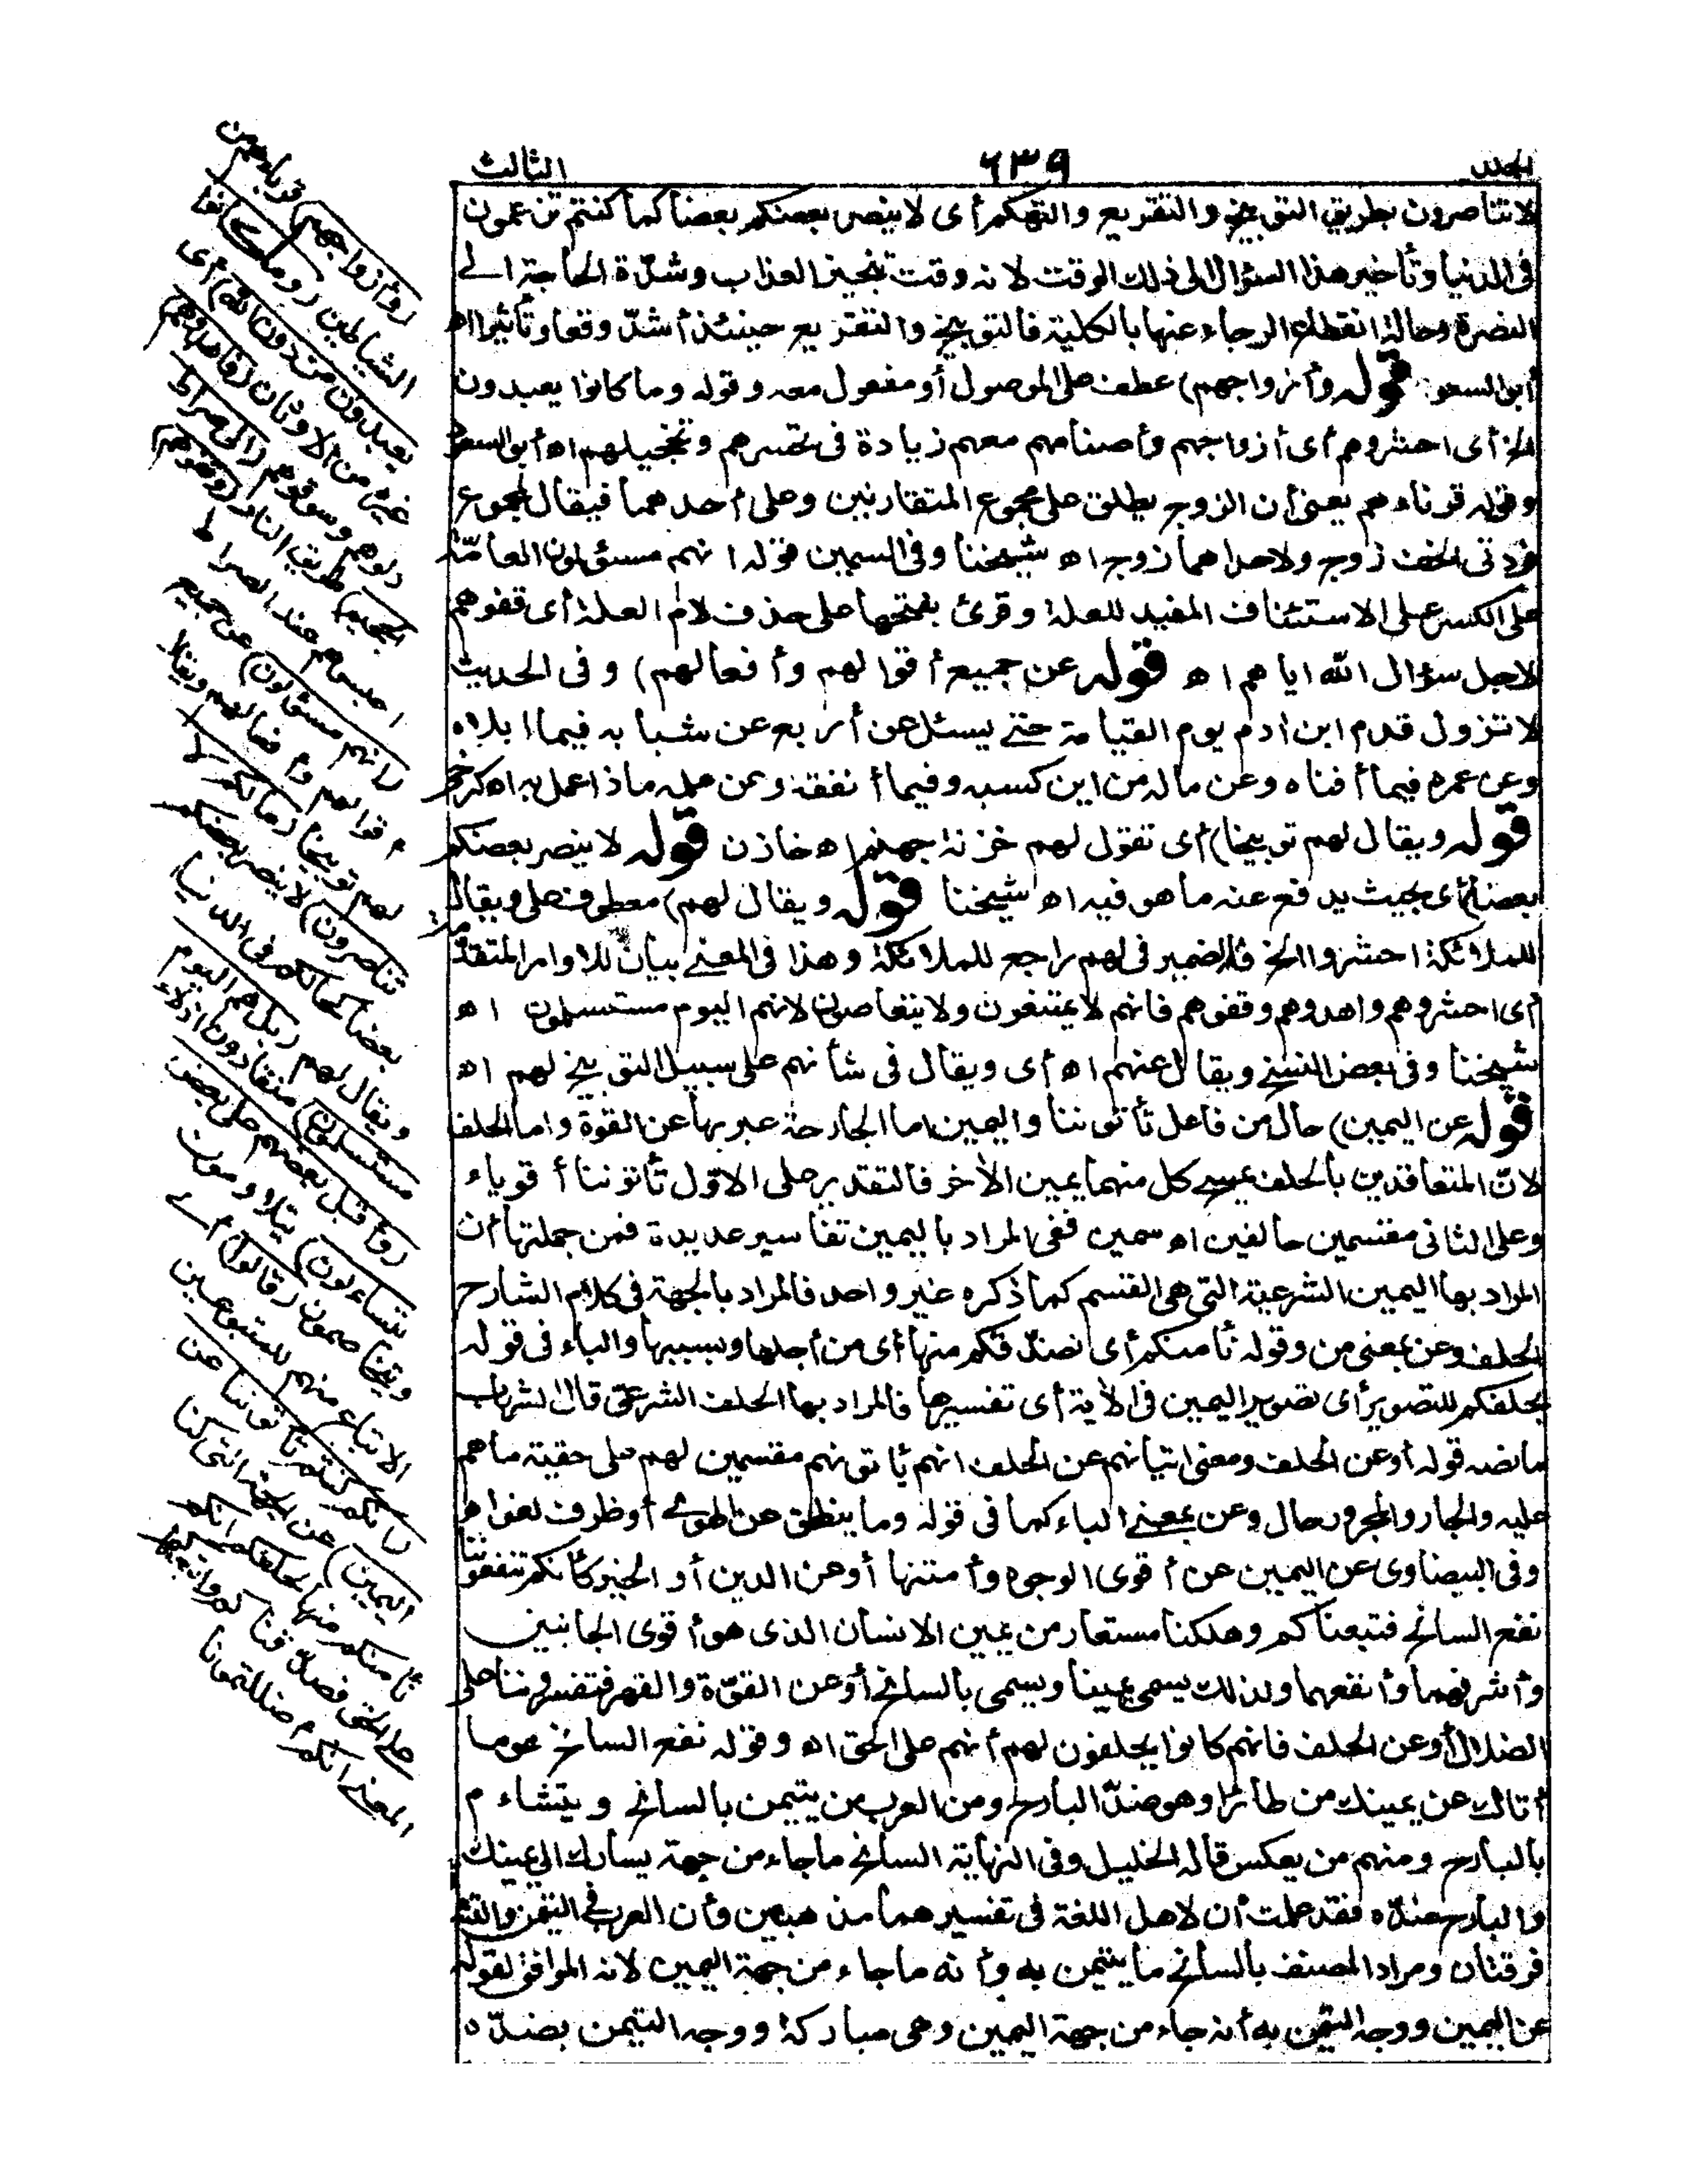 المجلد
٦٣٩
الثالث
لا تتناصرون بطريق التوبيخ والتقريع والتهكم أى لا ينصر بعضكم بعضا كما كنتم تزعمون
فى الدنيا وتأخير هذا السؤال الى ذلك الوقت لانه وقت تنجيز العذاب وشدّة الحاجة الى
النصرة وحالة انقطاع الرجاء عنها بالكلية فالتوبيخ والتقريع حينئذ أشدّ وقعا وتأثيرا اه
أبو السعود قوله وأزواجهم) عطف على الموصول أو مفعول معه وقوله وما كانوا يعبدون
الخ أى احشروهم أى أزواجهم وأصنامهم معهم زيادة فى تحسرهم وتخجيلهم اه أبو السعود
وقوله قرناءهم يعنى أن الزوج يطلق على مجموع المتقارنين وعلى أحدهما فيقال لمجموع
فردتى الخف زوج ولاحداهما زوج اه شيخنا وفى السمين قوله انهم مسئولون العامّة
على الكسر على الاستئناف المفيد للعلة وقرئ بفتحها على حذف لام العلة أى قفوهم
لاجل سؤال الله اياهم اه قوله عن جميع أقوالهم وأفعالهم) وفى الحديث
لا تزول قدم ابن ادم يوم القيامة حتى يسئل عن أربع عن شبابه فيما ابلاه
وعن عمره فيما أفناه وعن ماله من اين كسبه وفيما أنفقه وعن عمله ماذا عمل به اه كرخى
قوله ويقال لهم توبيخا) أى تقول لهم خزنة جهنم اه خازن قوله لا ينصر بعضكم
بعضا) أى بحيث يدفع عنه ما هو فيه اه شيخنا قوله ويقال لهم) معطوف على ويقال
للملائكة احشروا الخ فالضمير فى لهم راجع للملائكة وهذا فى المعنى بيان للاوامر المتقدّمة
أى احشروهم واهدوهم وقفوهم فانهم لا يمتنعون ولا يتعاصون لانهم اليوم مستسلمون اه
شيخنا وفى بعض النسخ ويقال عنهم اه أى ويقال فى شأنهم على سبيل التوبيخ لهم اه
قوله عن اليمين) حال من فاعل تأتوننا واليمين اما الجارحة عبر بها عن القوة واما الحلف
لانّ المتعاقدين بالحلف يمسح كل منهما يمين الأخر فالتقدير على الاوّل تأتوننا أقوياء
وعلى الثانى مقتسمين حالفين اه سمين ففى المراد باليمين تفاسير عديدة فمن جملتها أن
المراد بها اليمين الشرعية التى هى القسم كما ذكره غير واحد فالمراد بالجهة فى كلام الشارح
الحلف وعن بمعنى من وقوله نأمنكم أى نصدّقكم منها أى من أجلها وبسببها والباء فى قوله
بحلفكم للتصوير أى تصوير اليمين فى الأية أى تفسيرها فالمراد بها الحلف الشرعى قال الشهاب
ما نصه قوله أو عن الحلف ومعنى اتيانهم عن الحلف انهم يأتونهم مقسمين لهم على حقية ما هم
عليه والجار والمجرور حال وعن بمعنى الباء كما فى قوله وما ينطق عن الهوى أو ظرف لغو اه
وفى البيضاوى عن اليمين عن أقوى الوجوه وأمتنها أو عن الدين أو الخير كأنكم تنفعوننا
نفع السانح فتبعناكم وهلكنا مستعار من يمين الانسان الذى هو أقوى الجانبين
وأشرفهما وأنفعهما ولذلك يسمى يمينا ويسمى بالسانح أو عن القوّة والقهر فتقسروننا على
الضلال أو عن الحلف فانهم كانوا يحلفون لهم أنهم على الحق اه وقوله نفع السانح هو ما
أتاك عن يمينك من طائر وهو ضدّ البارح ومن العرب من يتيمن بالسانح ويتشاءم
بالبارح ومنهم من يعكس قاله الخليل وفى النهاية السانح ما جاء من جهة يسارك الى يمينك
والبارح ضدّه فقد علمت أن لاهل اللغة فى تفسيرهما مذهبين وأن العرب فى التيمن والتشاؤم
فرقتان ومراد المصنف بالسانح ما يتيمن به وأنه ما جاء من جهة اليمين لانه الموافق لقوله
عن اليمين ووجه التيمن به أنه جاء من جهة اليمين وهى مباركة ووجه التيمن بضدّه
(وأزواجهم) قرناءهم من
الشياطين (وما كانوا
يعبدون من دون الله) أى
غيره من الاوثان (فاهدوهم)
دلوهم وسوقوهم (الى صراط
الجحيم) طريق النار (وقفوهم)
احبسوهم عند الصراط
(انهم مسئولون) عن جميع
أقوالهم وأفعالهم ويقال
لهم توبيخا (مالكم لا
تناصرون) لا ينصر بعضكم
بعضا كحالكم فى الدنيا
ويقال لهم (بل هم اليوم
مستسلمون) منقادون أذلاء
(وأقبل بعضهم على بعض
يتساءلون) يتلاومون
ويتخاصمون (قالوا) أى
الاتباع منهم للمتبوعين
(انكم كنتم تأتوننا عن
اليمين) عن الجهة التى كنا
نأمنكم منها بحلفكم انكم
على الحق فصدّقناكم واتبعناكم
المعنى انكم أضللتمونا